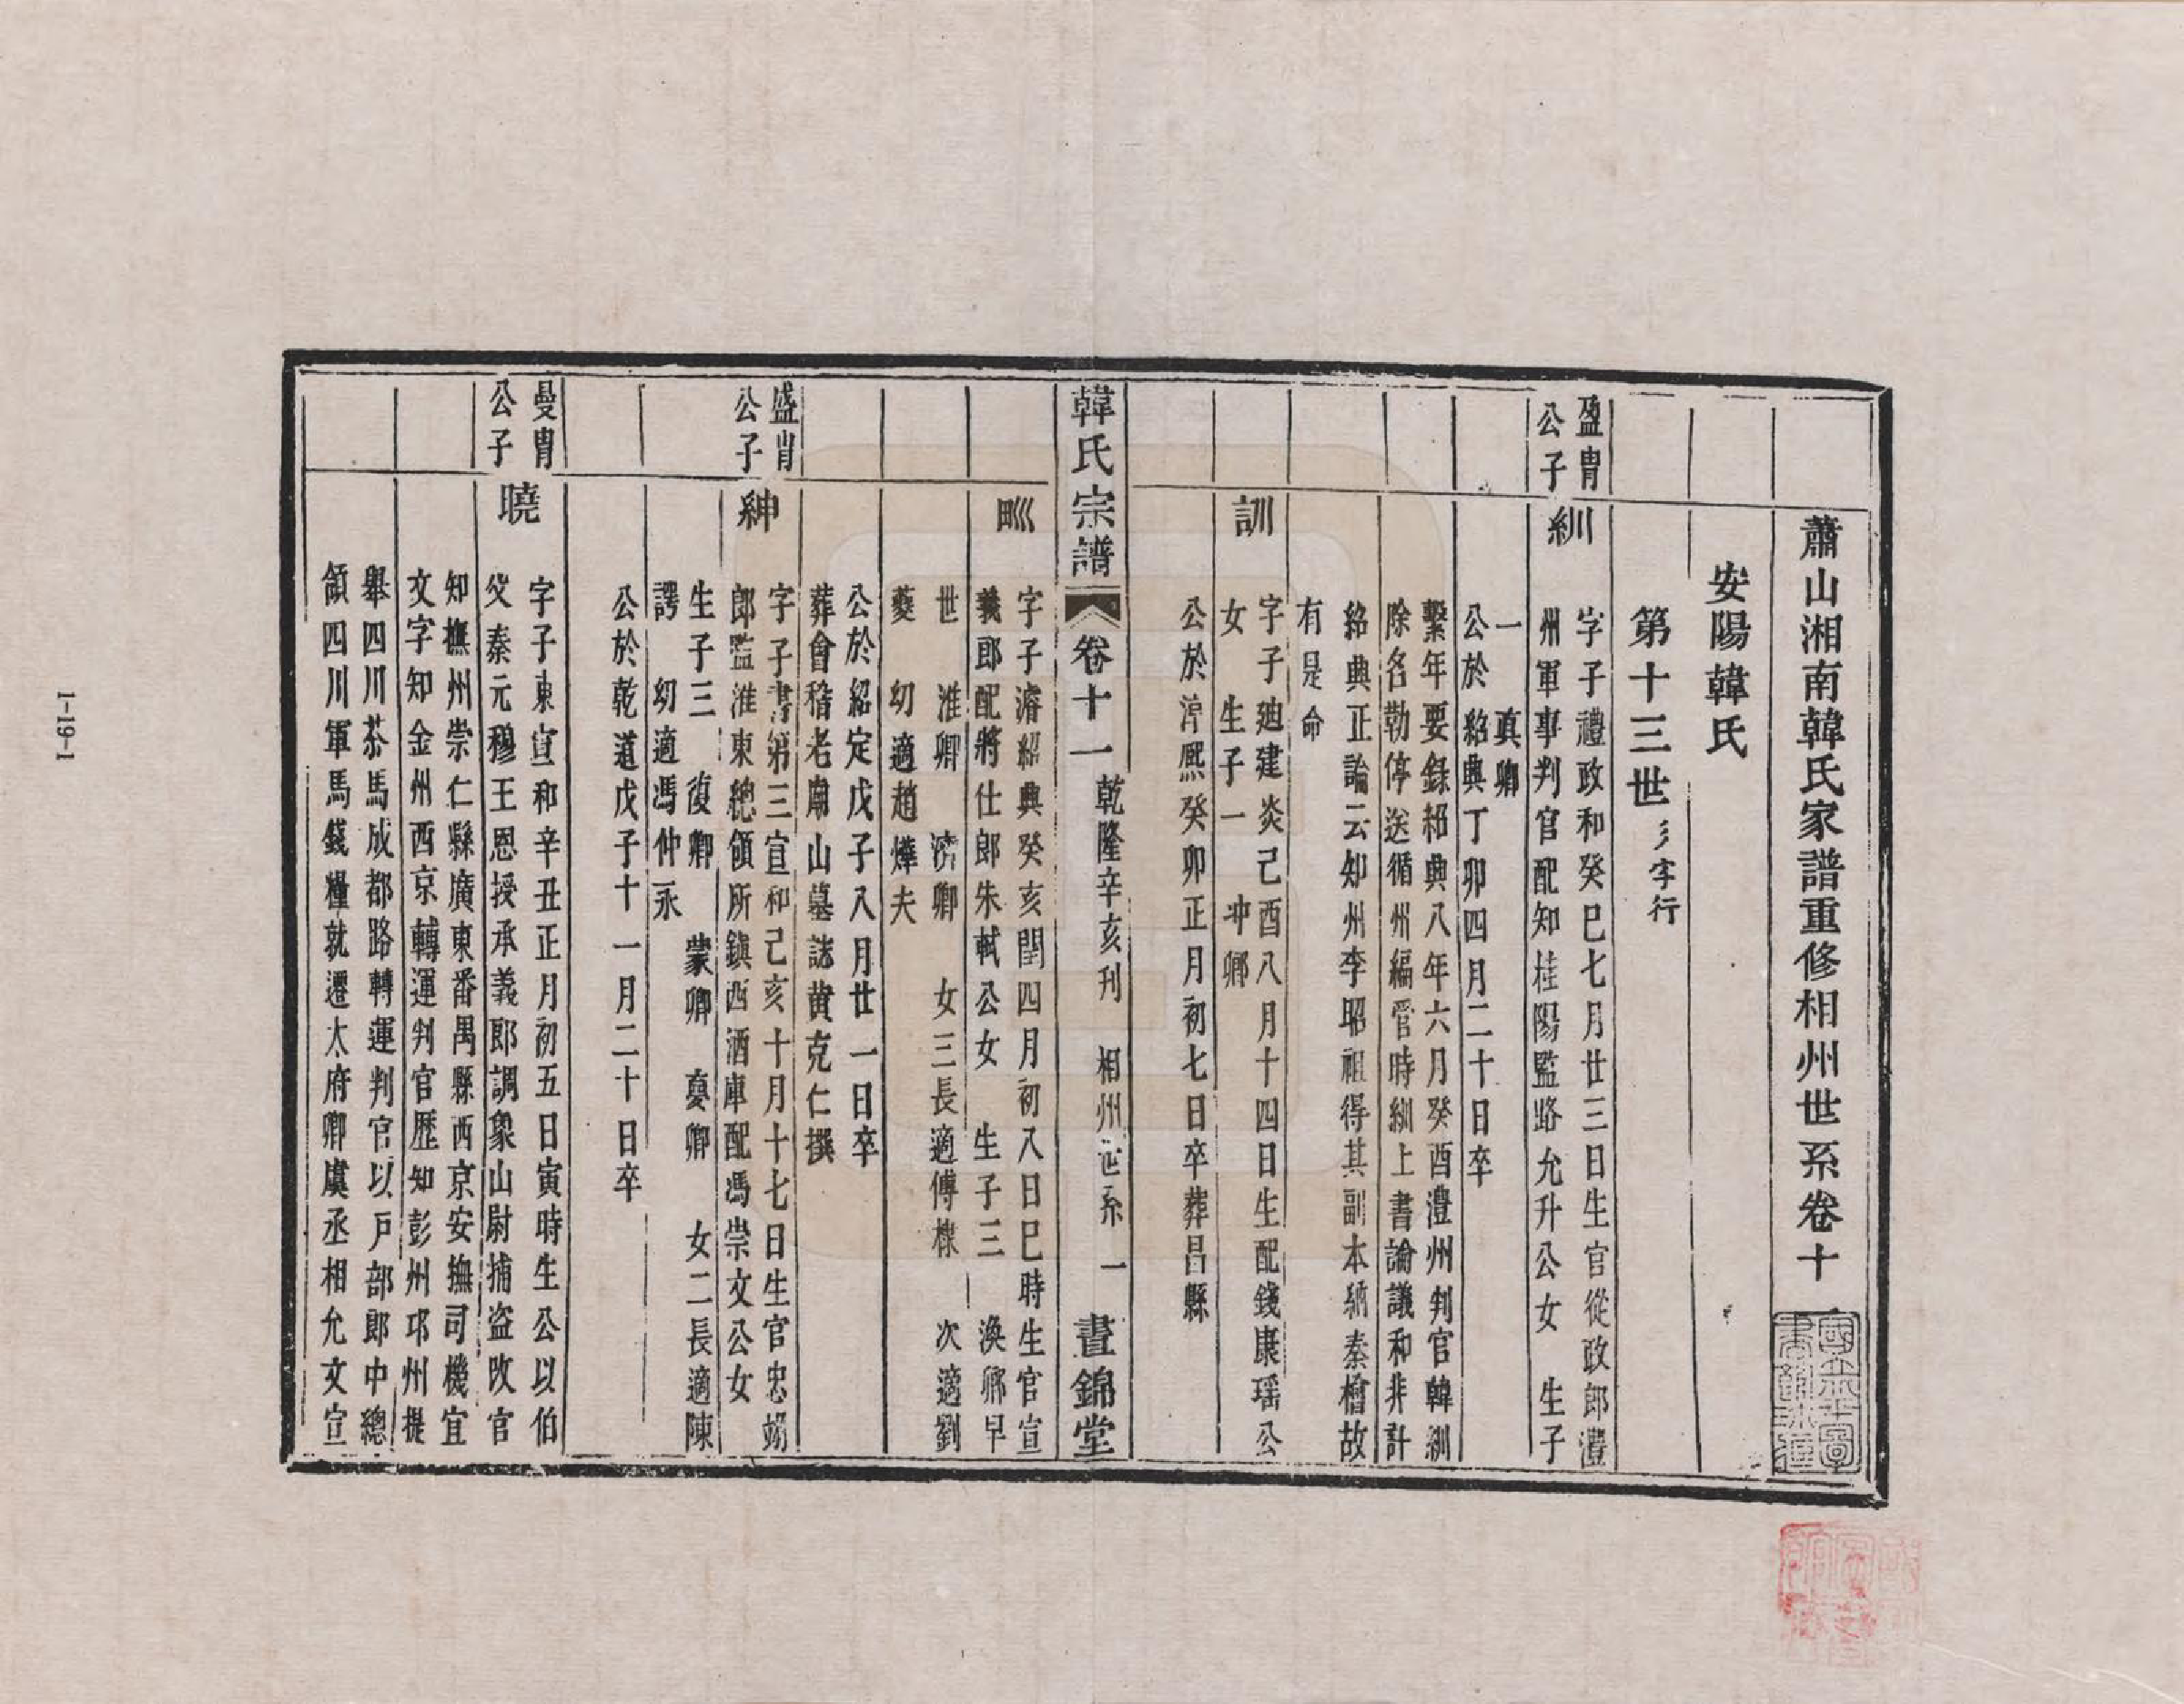 蕭山湘南韓氏家譜重修相州世系卷十一
安陽韓氏
第十三世彡字行
盈胄
公子
紃
字子禮政和癸巳七月廿三日生官從政郎澧
州軍事判官配知桂陽監路允升公女 生子
一 真卿
公於紹興丁卯四月二十日卒
繫年要錄紹興八年六月癸酉澧州判官韓紃
除名勒停送循州編管時紃上書論議和非計
紹興正論云知州李昭祖得其副本納秦檜故
有是命
訓
字子迪建炎己酉八月十四日生配錢康瑶公
女 生子一 冲卿
公於淳熈癸卯正月初七日卒葬昌縣
韓氏宗譜
卷十一
乾隆辛亥刊 相州世系 一
晝錦堂
甽
字子濬紹興癸亥閏四月初八日巳時生官宣
義郎配將仕郎朱軾公女 生子三 渙卿早
世 淮卿 濟卿 女三長適傅棣 次適劉
夔 幼適趙燁夫
公於紹定戊子八月廿一日卒
葬會稽老廟山墓誌黃克仁撰
盛胄
公子
紳
字子書第三宣和己亥十月十七日生官忠翊
郎監淮東總領所鎭西酒庫配馮崇文公女
生子三 復卿 蒙卿 夔卿 女二長適陳
諤 幼適馮仲永
公於乾道戊子十一月二十日卒
曼胄
公子
曉
字子東宣和辛丑正月初五日寅時生公以伯
父秦元穆王恩授承義郎調象山尉捕盜改官
知撫州崇仁縣廣東番禺縣西京安撫司機宜
文字知金州西京轉運判官歷知彭州邛州提
舉四川茶馬成都路轉運判官以戸部郎中總
領四川軍馬錢糧就遷太府卿虞丞相允文宣
1-19-1